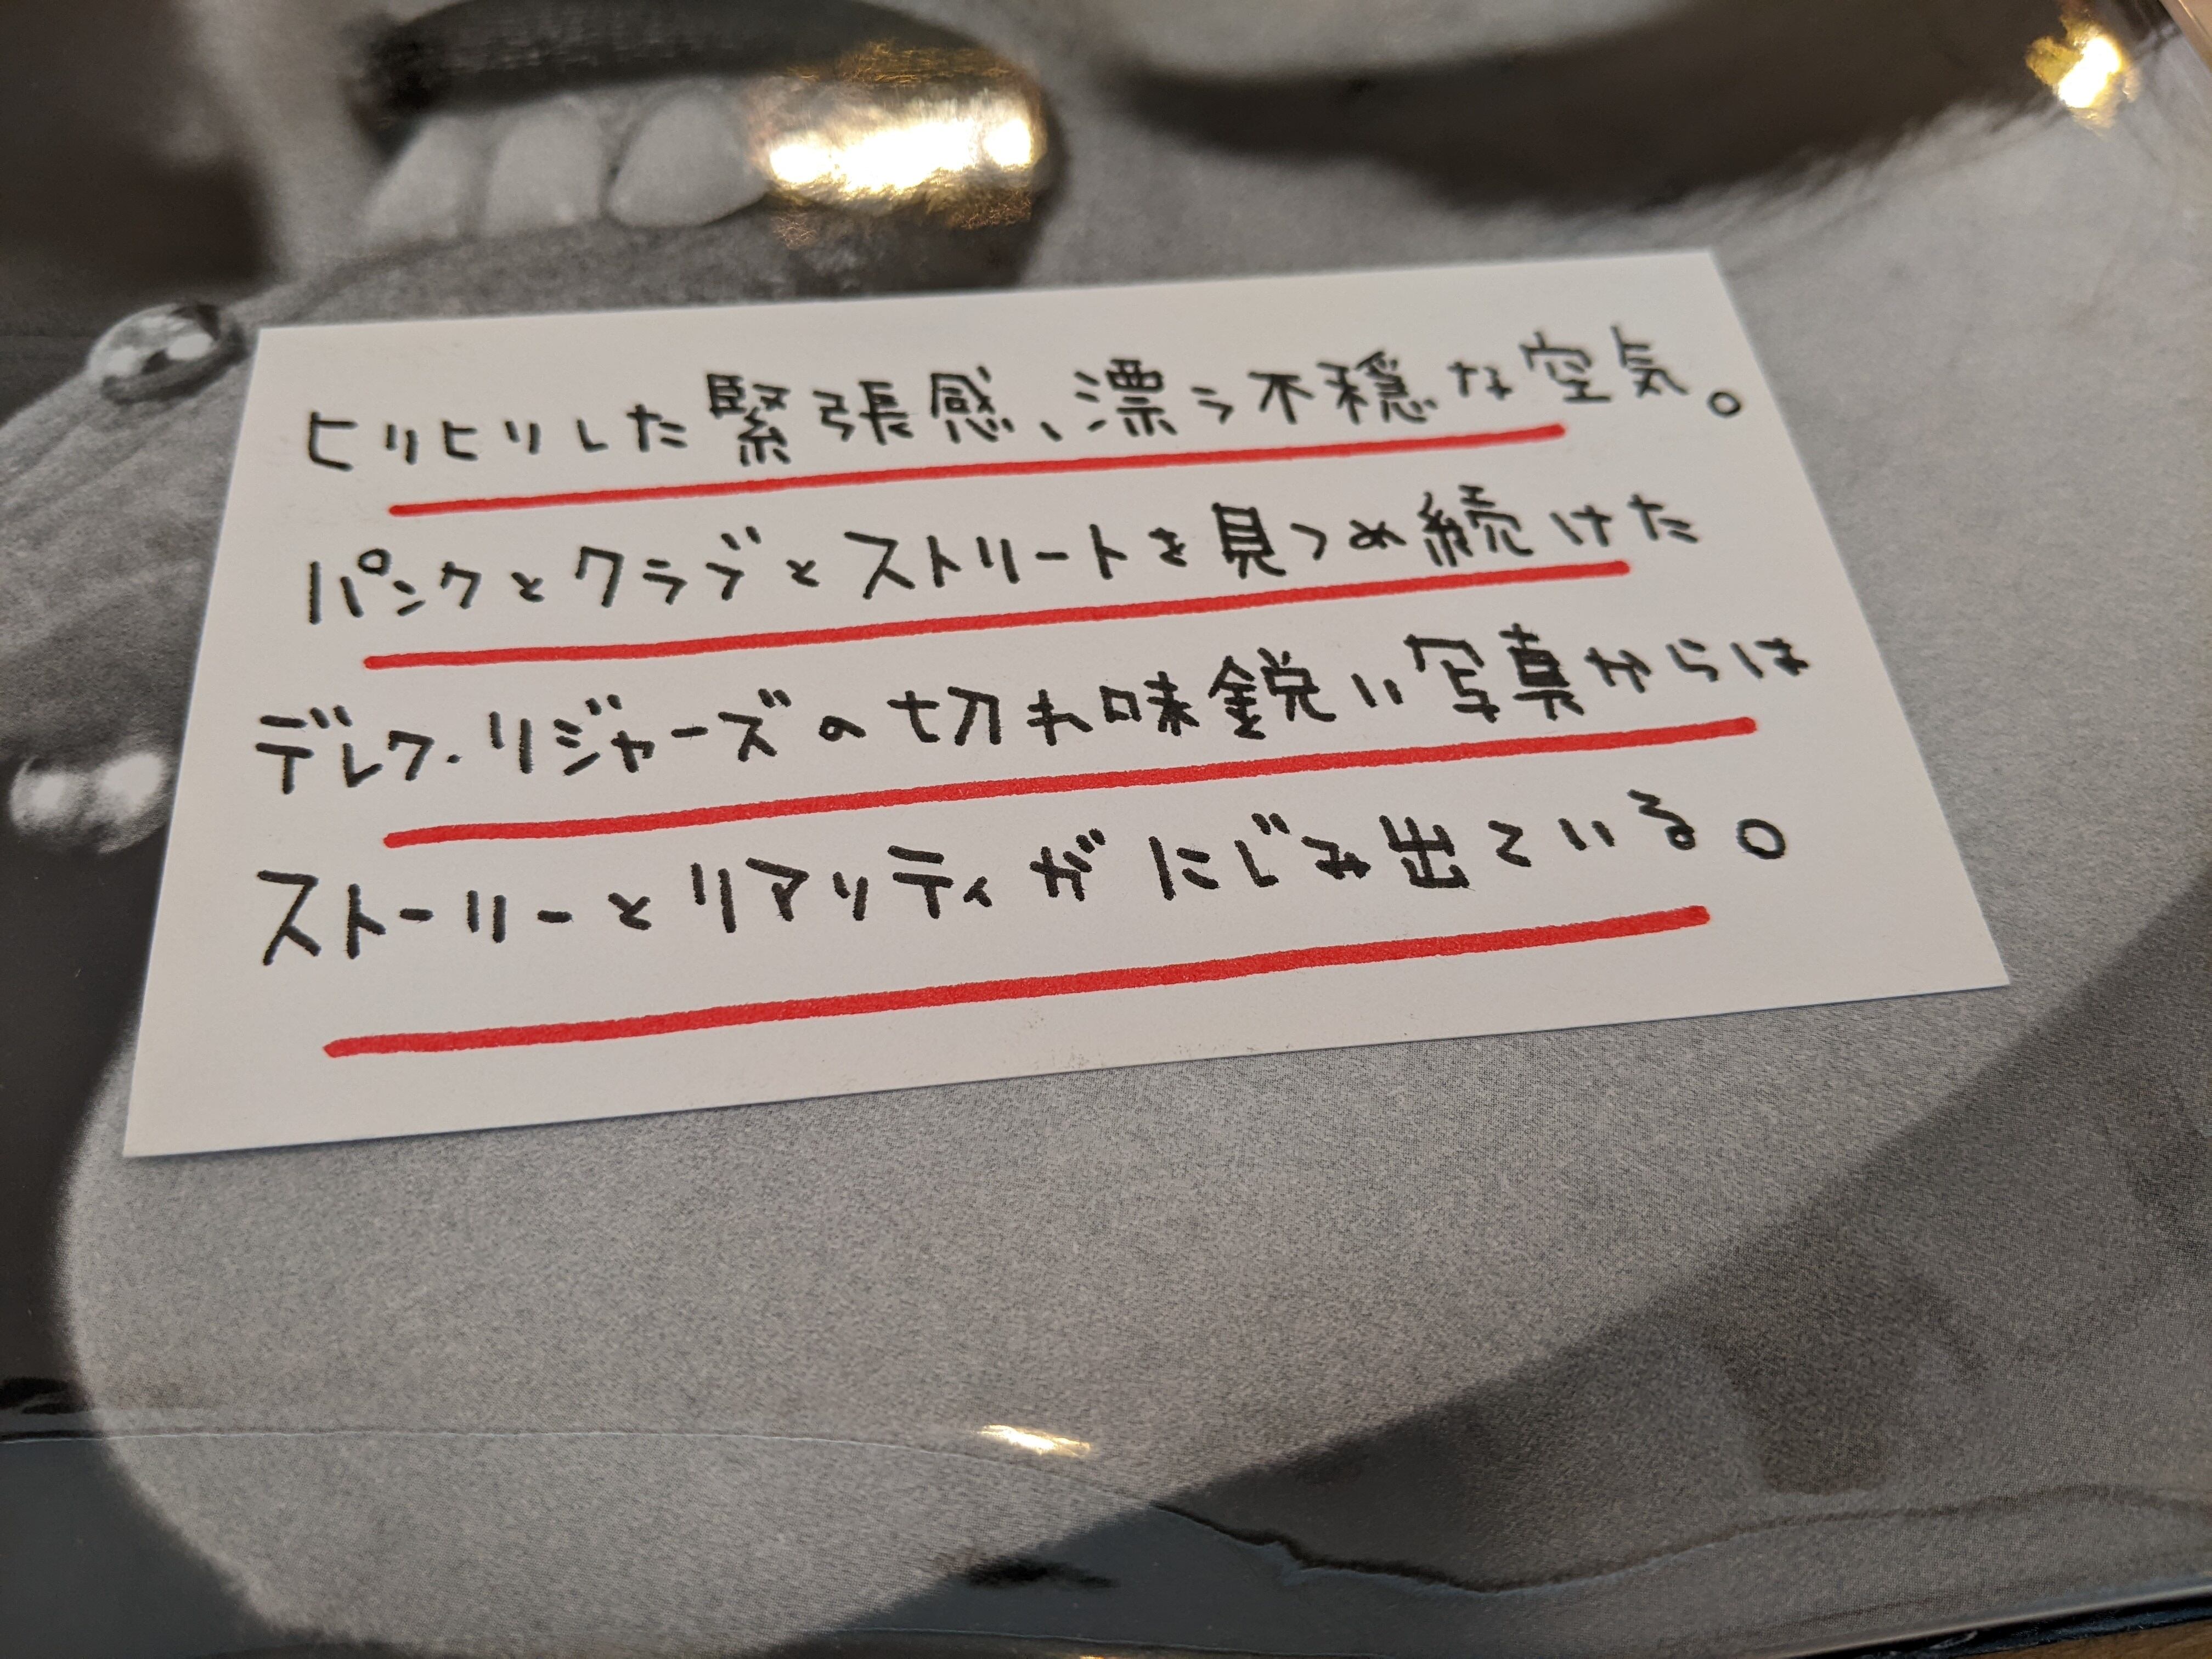 ヒリヒリした緊張感、漂う不穏な空気。
パンクとクラブとストリートを見つめ続けた
デレク・リジャーズの切れ味鋭い写真からは
ストーリーとリアリティがにじみ出ている。